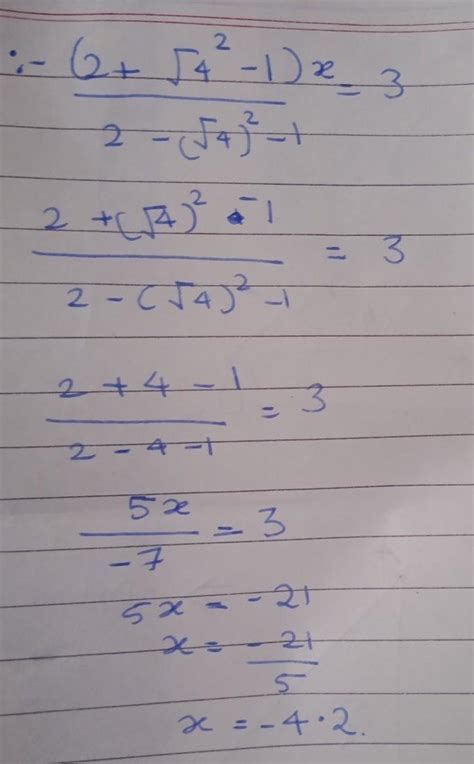 :- (2 + √4² - 1)x / 2 - (√4)² - 1 = 3
2 + (√4)² - 1 / 2 - (√4)² - 1 = 3
2 + 4 - 1 / 2 - 4 - 1 = 3
5x / -7 = 3
5x = -21
x = -21 / 5
x = -4·2.